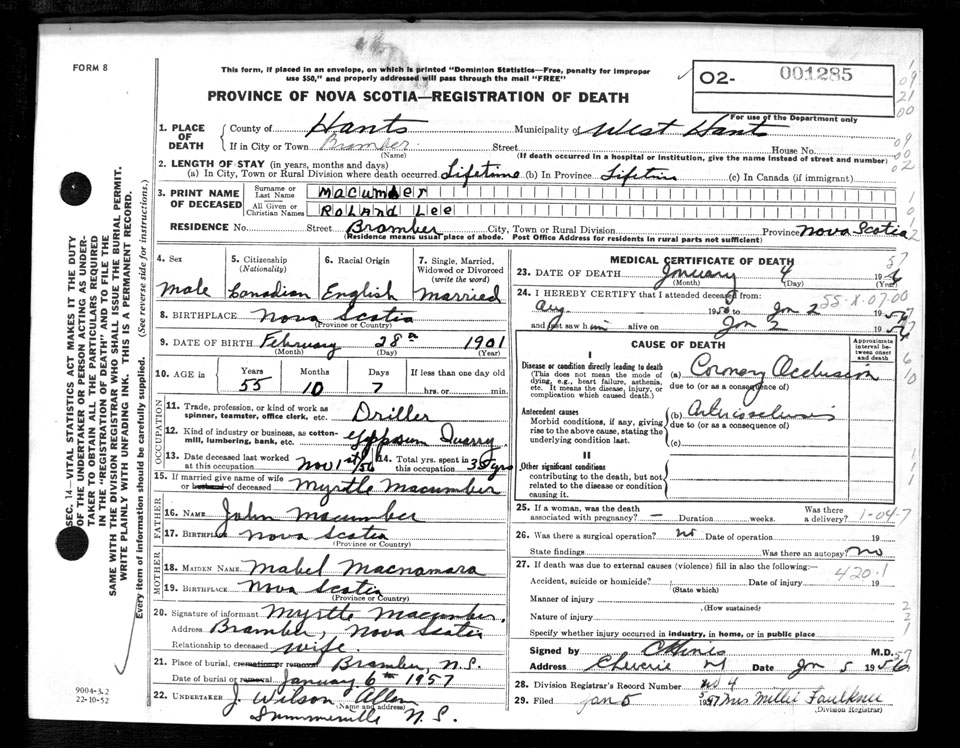 FORM 8
This form, if placed in an envelope, on which is printed "Dominion Statistics—Free, penalty for improper
use $50," and properly addressed will pass through the mail "FREE"
PROVINCE OF NOVA SCOTIA—REGISTRATION OF DEATH
02- 001285
For use of the Department only
1. PLACE OF DEATH
County of Hants Municipality of West Hants
If in City or Town Bramber Street House No.
(Name) (If death occurred in a hospital or institution, give the name instead of street and number)
2. LENGTH OF STAY (in years, months and days)
(a) In City, Town or Rural Division where death occurred Lifetime (b) In Province Lifetim (c) In Canada (if immigrant)
3. PRINT NAME OF DECEASED
Surname or Last Name Macumber
All Given or Christian Names Roland Lee
RESIDENCE No. Street Bramber City, Town or Rural Division Province Nova Scotia
(Residence means usual place of abode. Post Office Address for residents in rural parts not sufficient)
4. Sex Male
5. Citizenship (Nationality) Canadian
6. Racial Origin English
7. Single, Married, Widowed or Divorced (write the word) Married
8. BIRTHPLACE Nova Scotia
(Province or Country)
9. DATE OF BIRTH February 28th 1901
(Month) (Day) (Year)
10. AGE in Years 55 Months 10 Days 7 If less than one day old hrs. or min.
OCCUPATION
11. Trade, profession, or kind of work as spinner, teamster, office clerk, etc. Driller
12. Kind of industry or business, as cotton-mill, lumbering, bank, etc. Gypsum Quarry
13. Date deceased last worked at this occupation Nov 1st/56
14. Total yrs. spent in this occupation 35 yrs
15. If married give name of wife or husband of deceased Myrtle Macumber
FATHER
16. NAME John Macumber
17. Birthplace Nova Scotia
(Province or Country)
MOTHER
18. MAIDEN NAME Mabel Macnamara
19. BIRTHPLACE Nova Scotia
(Province or Country)
20. Signature of informant Myrtle Macumber
Address Bramber, Nova Scotia
Relationship to deceased wife.
21. Place of burial, cremation or removal Bramber, N.S.
Date of burial or removal January 6th 1957
22. UNDERTAKER J. Wilson Allen
(Name and address)
Summerville N.S.
MEDICAL CERTIFICATE OF DEATH
23. DATE OF DEATH January 4 1956 57
(Month) (Day) (Year)
24. I HEREBY CERTIFY that I attended deceased from:
55-X-07-00
Aug 1956 to Jan 2 1957
and last saw him alive on Jan 2 1957
CAUSE OF DEATH
Approximate interval between onset and death
I
Disease or condition directly leading to death (a) Coronary Occlusion
(This does not mean the mode of dying, e.g., heart failure, asthenia, etc. It means the disease, injury, or complication which caused death.)
due to (or as a consequence of)
Antecedent causes (b)
Morbid conditions, if any, giving rise to the above cause, stating the underlying condition last.
due to (or as a consequence of)
(c)
II
Other significant conditions
contributing to the death, but not related to the disease or condition causing it.
25. If a woman, was the death associated with pregnancy? — Duration weeks. Was there a delivery? 1-04-7
26. Was there a surgical operation? no Date of operation 19
State findings Was there an autopsy? No
27. If death was due to external causes (violence) fill in also the following:—
420.1
Accident, suicide or homicide? Date of injury 19
(State which)
Manner of injury
(How sustained)
Nature of injury
Specify whether injury occurred in industry, in home, or in public place
Signed by C Hines M.D.
Address Cheverie NS Date Jan 5 1956 57
28. Division Registrar's Record Number No 4
29. Filed Jan 5 1957 Mrs Millie Faulkner
(Division Registrar)
SEC. 14—VITAL STATISTICS ACT MAKES IT THE DUTY
OF THE UNDERTAKER OR PERSON ACTING AS UNDER-
TAKER TO OBTAIN ALL THE PARTICULARS REQUIRED
IN THE "REGISTRATION OF DEATH" AND TO FILE THE
SAME WITH THE DIVISION REGISTRAR WHO SHALL ISSUE THE BURIAL PERMIT.
WRITE PLAINLY WITH UNFADING INK. THIS IS A PERMANENT RECORD.
Every item of information should be carefully supplied. (See reverse side for instructions.)
9004-3.2
22-10-52